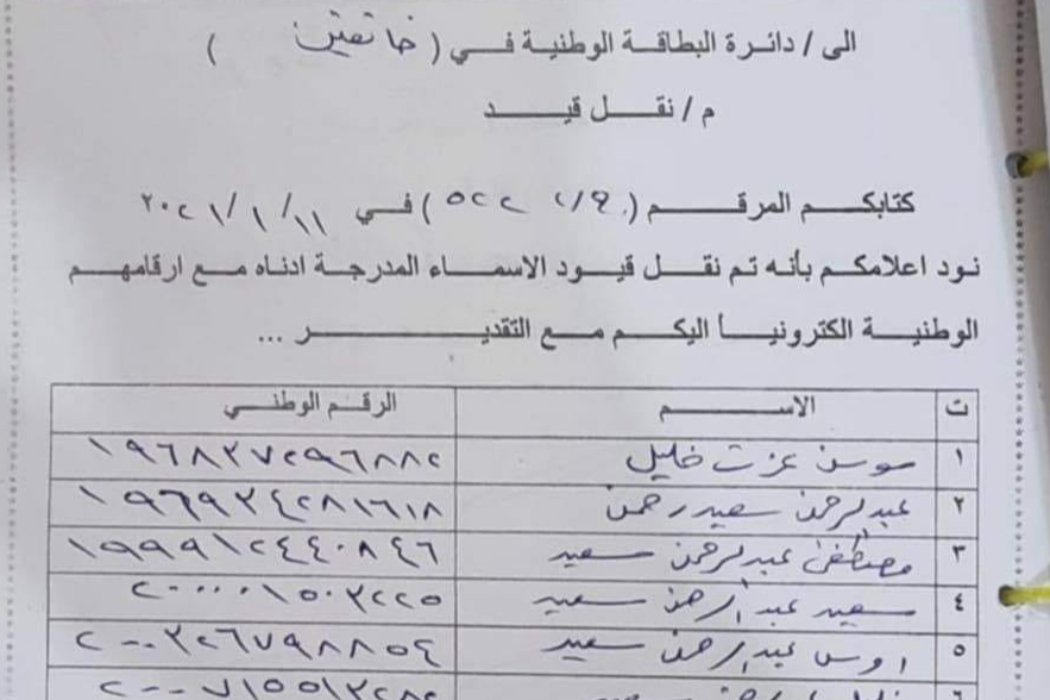 الى / دائرة البطاقة الوطنية فـــي ( خانقين )
م / نقـــل قيـــد
كتابكـــم المرقـــم ( ) فـــي ٢٠٢١/١/١١
نـود اعلامكـم بأنه تم نقـل قيـود الاسمـاء المدرجة ادناه مـع ارقامهـم
الوطنيـة الكترونيـاً اليكـم مـع التقديـــر ...
ت الاســـم الرقـم الوطنـي
١ سوسن عزت خليل ١٩٦٨٣٧٢٩٦٨٨٢
٢ عبدالرحمن سعيد رحمن ١٩٦٩٣٤٢٨١٦١٨
٣ مصطفى عبدالرحمن سعيد ١٩٩٩١٢٤٤٠٨٤٦
٤ سعيد عبد الرحمن سعيد ٢٠٠٠٠١٥٠٣٢٢٥
٥ اوس عبد الرحمن سعيد ٢٠٠٣٢٦٧٩٨٨٥٤